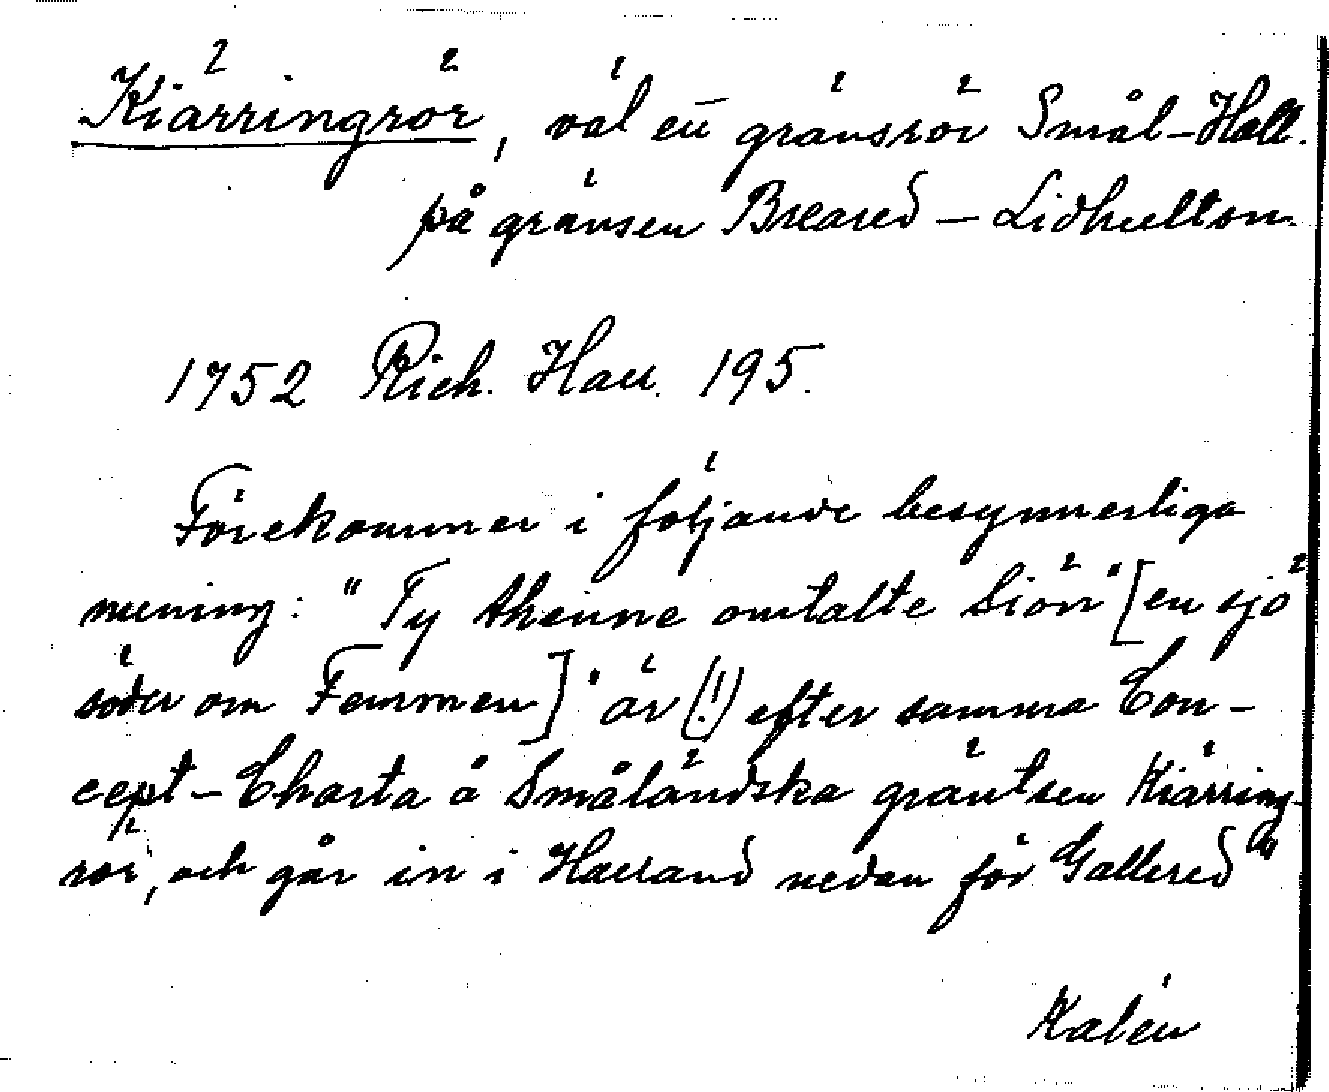 Kiärringrör, väl ett gränsrör Smål-Hall.
på gränsen Breared – Lidhultson.
1752 Rich. Hall. 195.
Förekommer i följande besynnerliga
mening: "Ty thenne omtalte Siön" [en sjö
söder om Femmen] "är (!) efter samma Con-
cept-Charta å Småländska gräntsen Kiärring-
rör, och går in i Halland nedan för Gallered"
Kalén